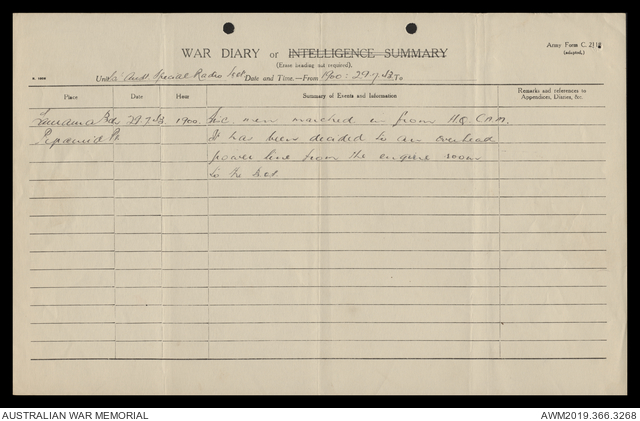 WAR DIARY or INTELLIGENCE SUMMARY
(Erase heading not required).
Army Form C. 2118
(adapted.)
Unit Aust Special Radio Det Date and Time.—From 1900: 29.7.43 To
Place Date Hour Summary of Events and Information Remarks and references to Appendices, Diaries, &c.
29.7.43 1900 men marched in from H.Q.
It has been decided to an overhead
power line from the engine room
to the Det
AUSTRALIAN WAR MEMORIAL
AWM2019.366.3268